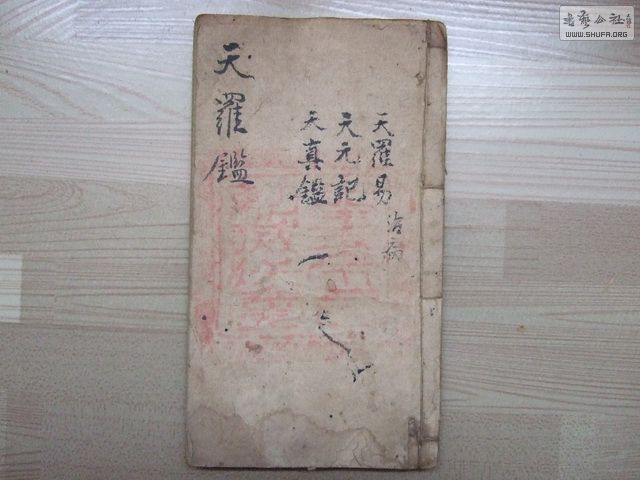 天羅鑑
天羅易治病
天元記
天真鑑
書藝公社
WWW.SHUFA.ORG